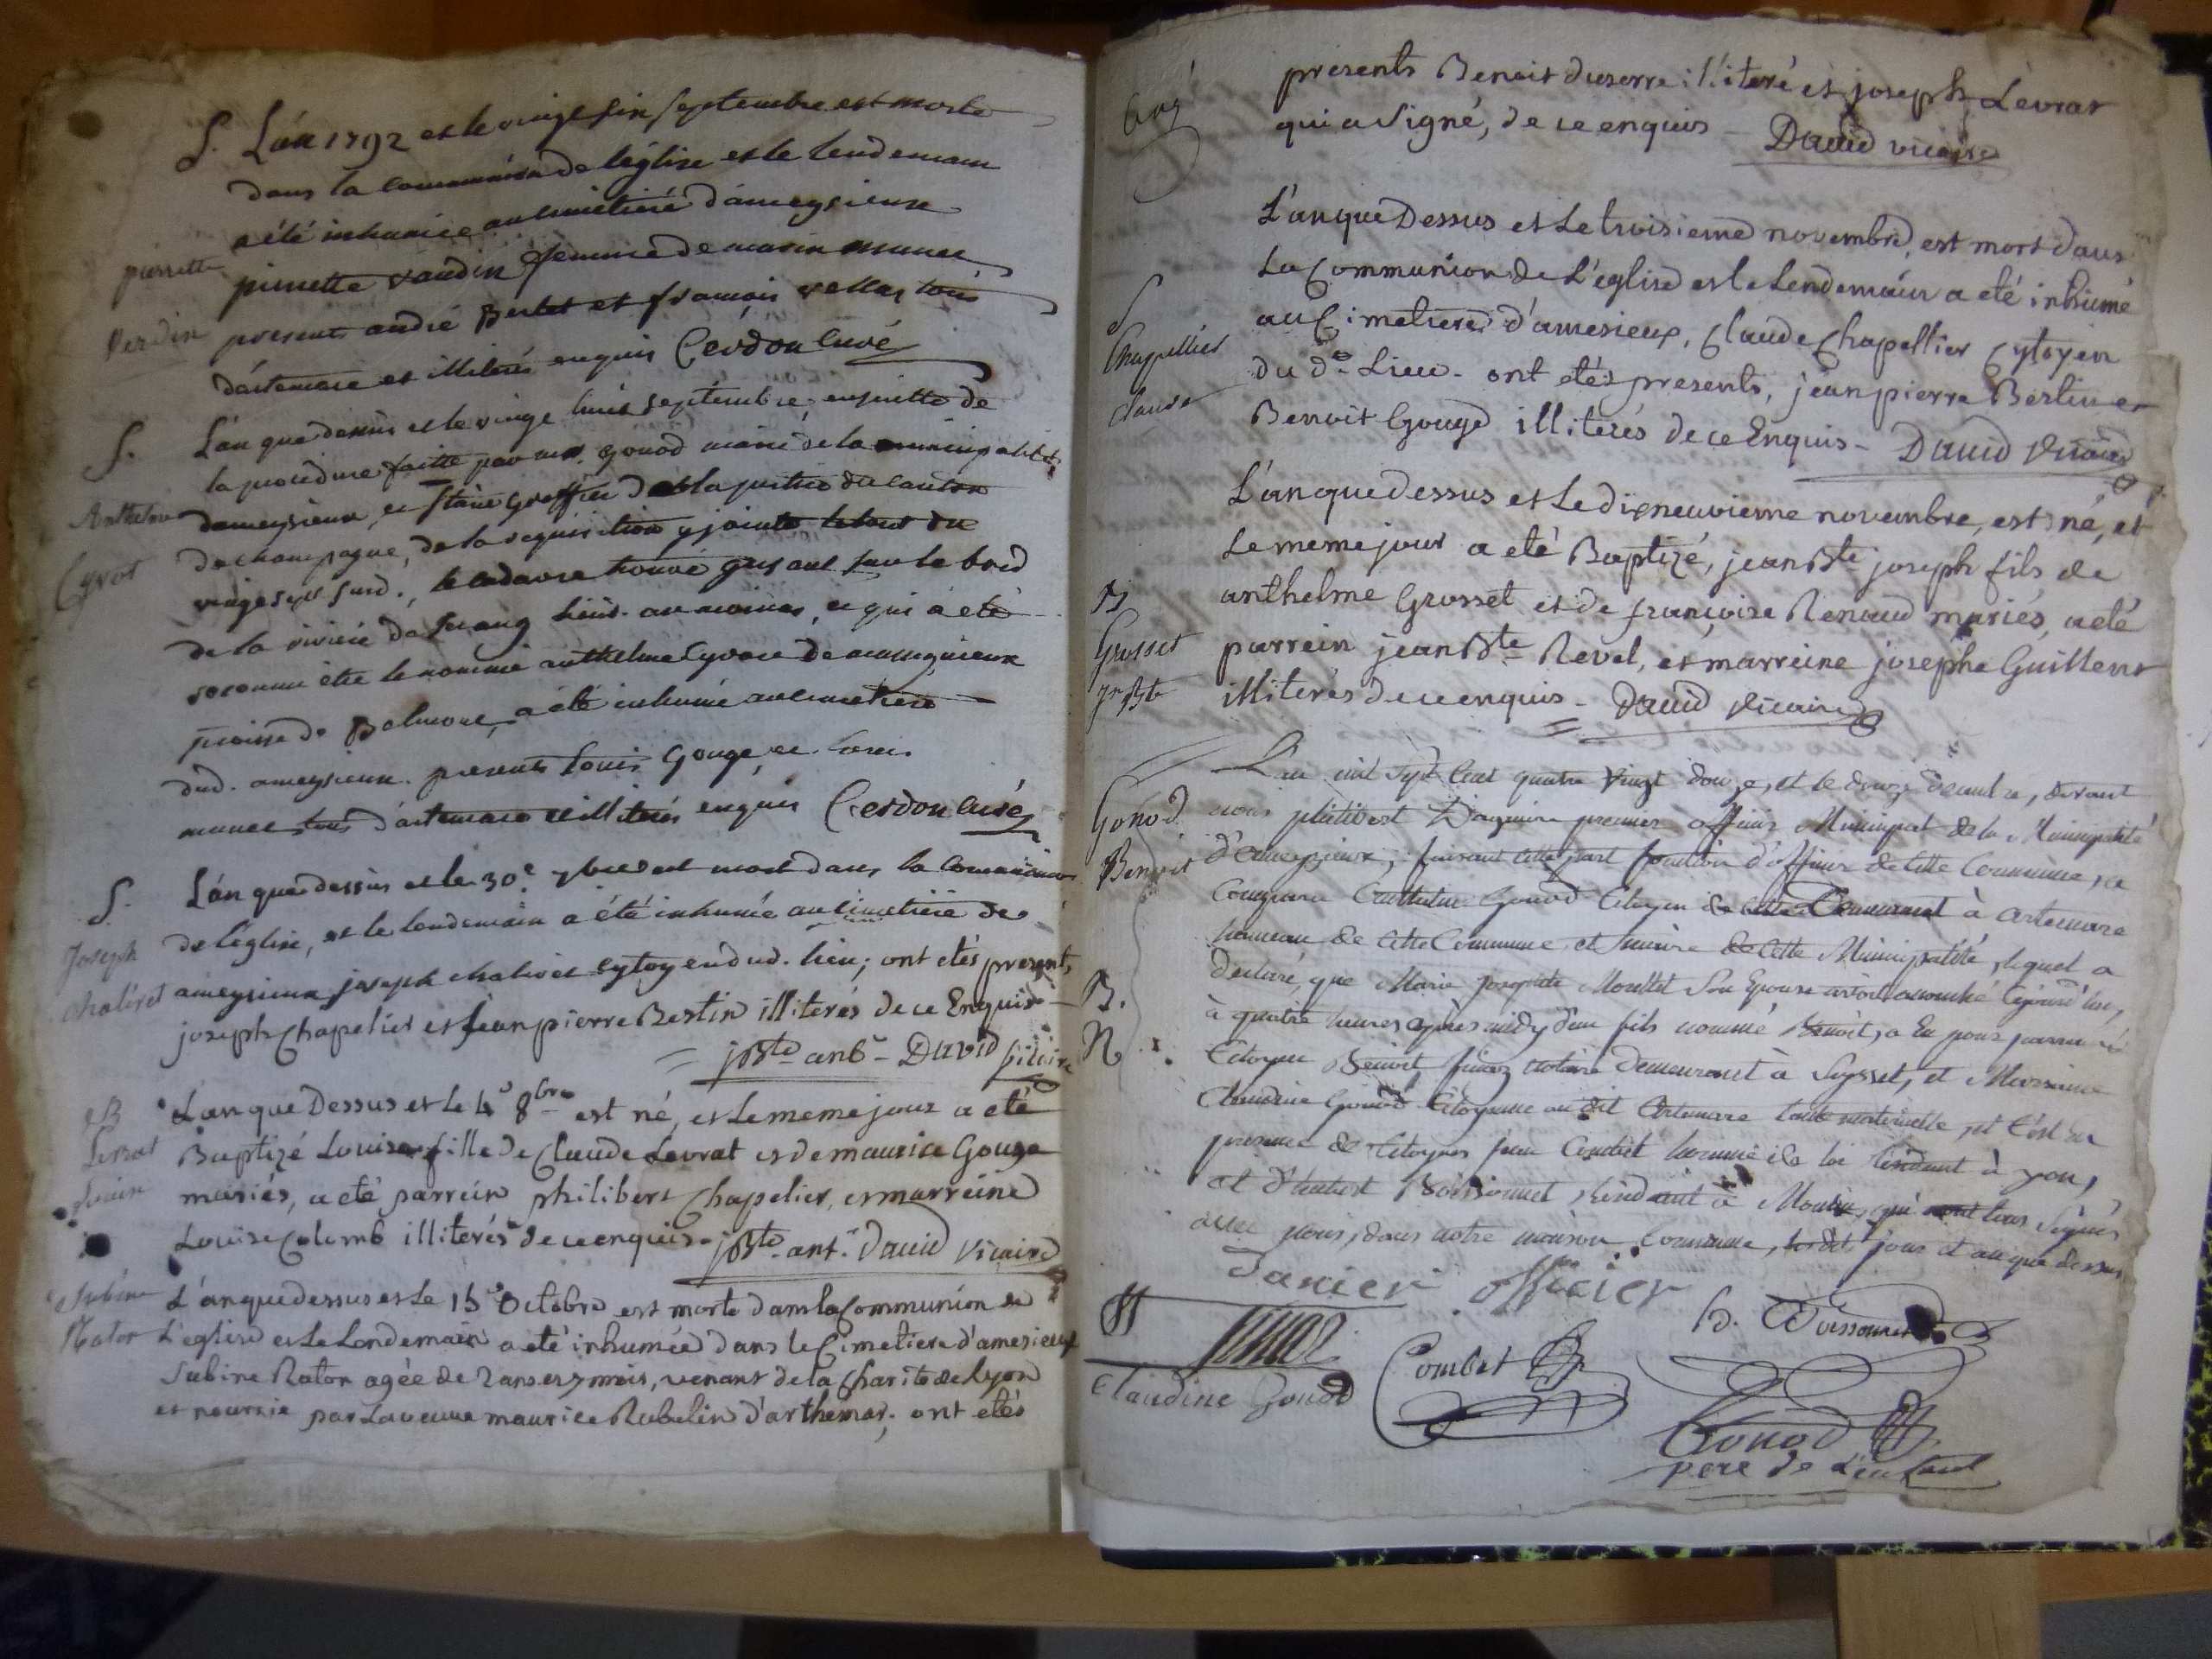 S. L'an 1792 et le vingt six septembre est morte
dans la communion de l'église et le lendemain
a été inhumée au cimetière d'ameysieux
pierrette
pierrette vaudin femme de marin munet
Verdin
presents andré Berlet et françois vellas tous
d'artemare et illiterés enquis Cerdon curé
S.
L'an que dessus et le vingt huit septembre, ensuitte de
la procedure faitte par mr. gonod maire de la municipalité
Anthelme
d'ameysieux, et greffier de la justice du canton
Cyvot
de champagne, de la requisition y jointe le tout du
vingt sept susd., le cadavre trouvé gisant sur le bord
de la riviere de Serang, et qui a eté
reconnu être le nommé anthelme Cyvoct de massignieux
paroisse de Belmont, a été inhumé au cimetiere
dud. ameysieux. presents Louis Gouge, et
munet tous d'artemare et illiterés enquis Cerdon curé
S.
L'an que dessus et le 30e 7bre est mort dans la communion
Joseph
de l'église, et le lendemain a été inhumée au cimetière de
chaliret
ameysieux joseph chaliret cytoyen dud. lieu; ont etés presents
joseph Chapelier et jean pierre Bertin illiterés de ce Enquis
= jBte ant - David vicaire
B
L'an que Dessus et le 4e 8bre est né, et le meme jour a eté
Levrat
Baptizé Louise fille de Claude Levrat et de maurice Gouge
Louise
mariés, a eté parrein philibert Chapelier, et marreine
Louise Colomb illiterés de ce enquis - jBte ant. David vicaire
Sabine
L'an que dessus et Le 15e Octobre est morte dans la Communion de
Raton
L'eglise et Le Lendemain a eté inhumée dans le Cimetiere d'amesieux
Sabine Raton agée de 2 ans et 7 mois, venant de la charité de Lyon
et nourrie par La veuve maurice Rubelin d'arthemar; ont etés
presents Benoit duserre illiteré et joseph Levrat
qui a signé, de ce enquis David vicaire
L'an que Dessus et Le troisieme novembre, est mort dans
La Communion de L'eglise et le Lendemain a eté inhumé
S
au Cimetiere d'amesieux, Claude Chapellier Cytoyen
Chapellier
du dt Lieu - ont etés presents, jean pierre Bertin et
claude
Benoit Gouge illiterés de ce Enquis - David Vicaire
L'an que dessus et Le dixneuvieme novembre, est né, et
Le meme jour a eté Baptizé, jean Bte joseph fils de
B
anthelme Grosset et de françoise Renaud mariés, a eté
Grosset
parrein jean Bte Revel, et marreine josephe Guillent
jn Bte
illiterés de ce enquis - David Vicaire
L'an mil sept cent quatre vingt douze, et le douze decembre, devant
Gonod
nous philibert premier officier Municipal de la Municipalité
Benoit
d'ameyzieux, faisant cette part fonction d'officier de cette Commune, a
Comparu Anthelme Gonod Citoyen demeurant à artemare
hameau de cette Commune et maire de cette Municipalité, lequel a
déclaré, que Marie josephte Mollet Son Epouse accouché
B.
à quatre heures après midy d'un fils nommé Benoit, a Eu pour parrain le
N
Citoyen Benoit notaire Demeurant à Seyssel, et Marraine
Claudine Gonod Citoyenne au dit Artemare tante maternelle, et c'est en
presence de Citoyens jean Combet homme de loi résidant à yon,
et d'hubert Boissonnet résidant à qui ont tous Signés
avec nous, dans notre maison Commune, les dits jour et an que dessus
officier
B. Boissonnet
Combet
Claudine Gonod
Gonod
pere de l'enfant